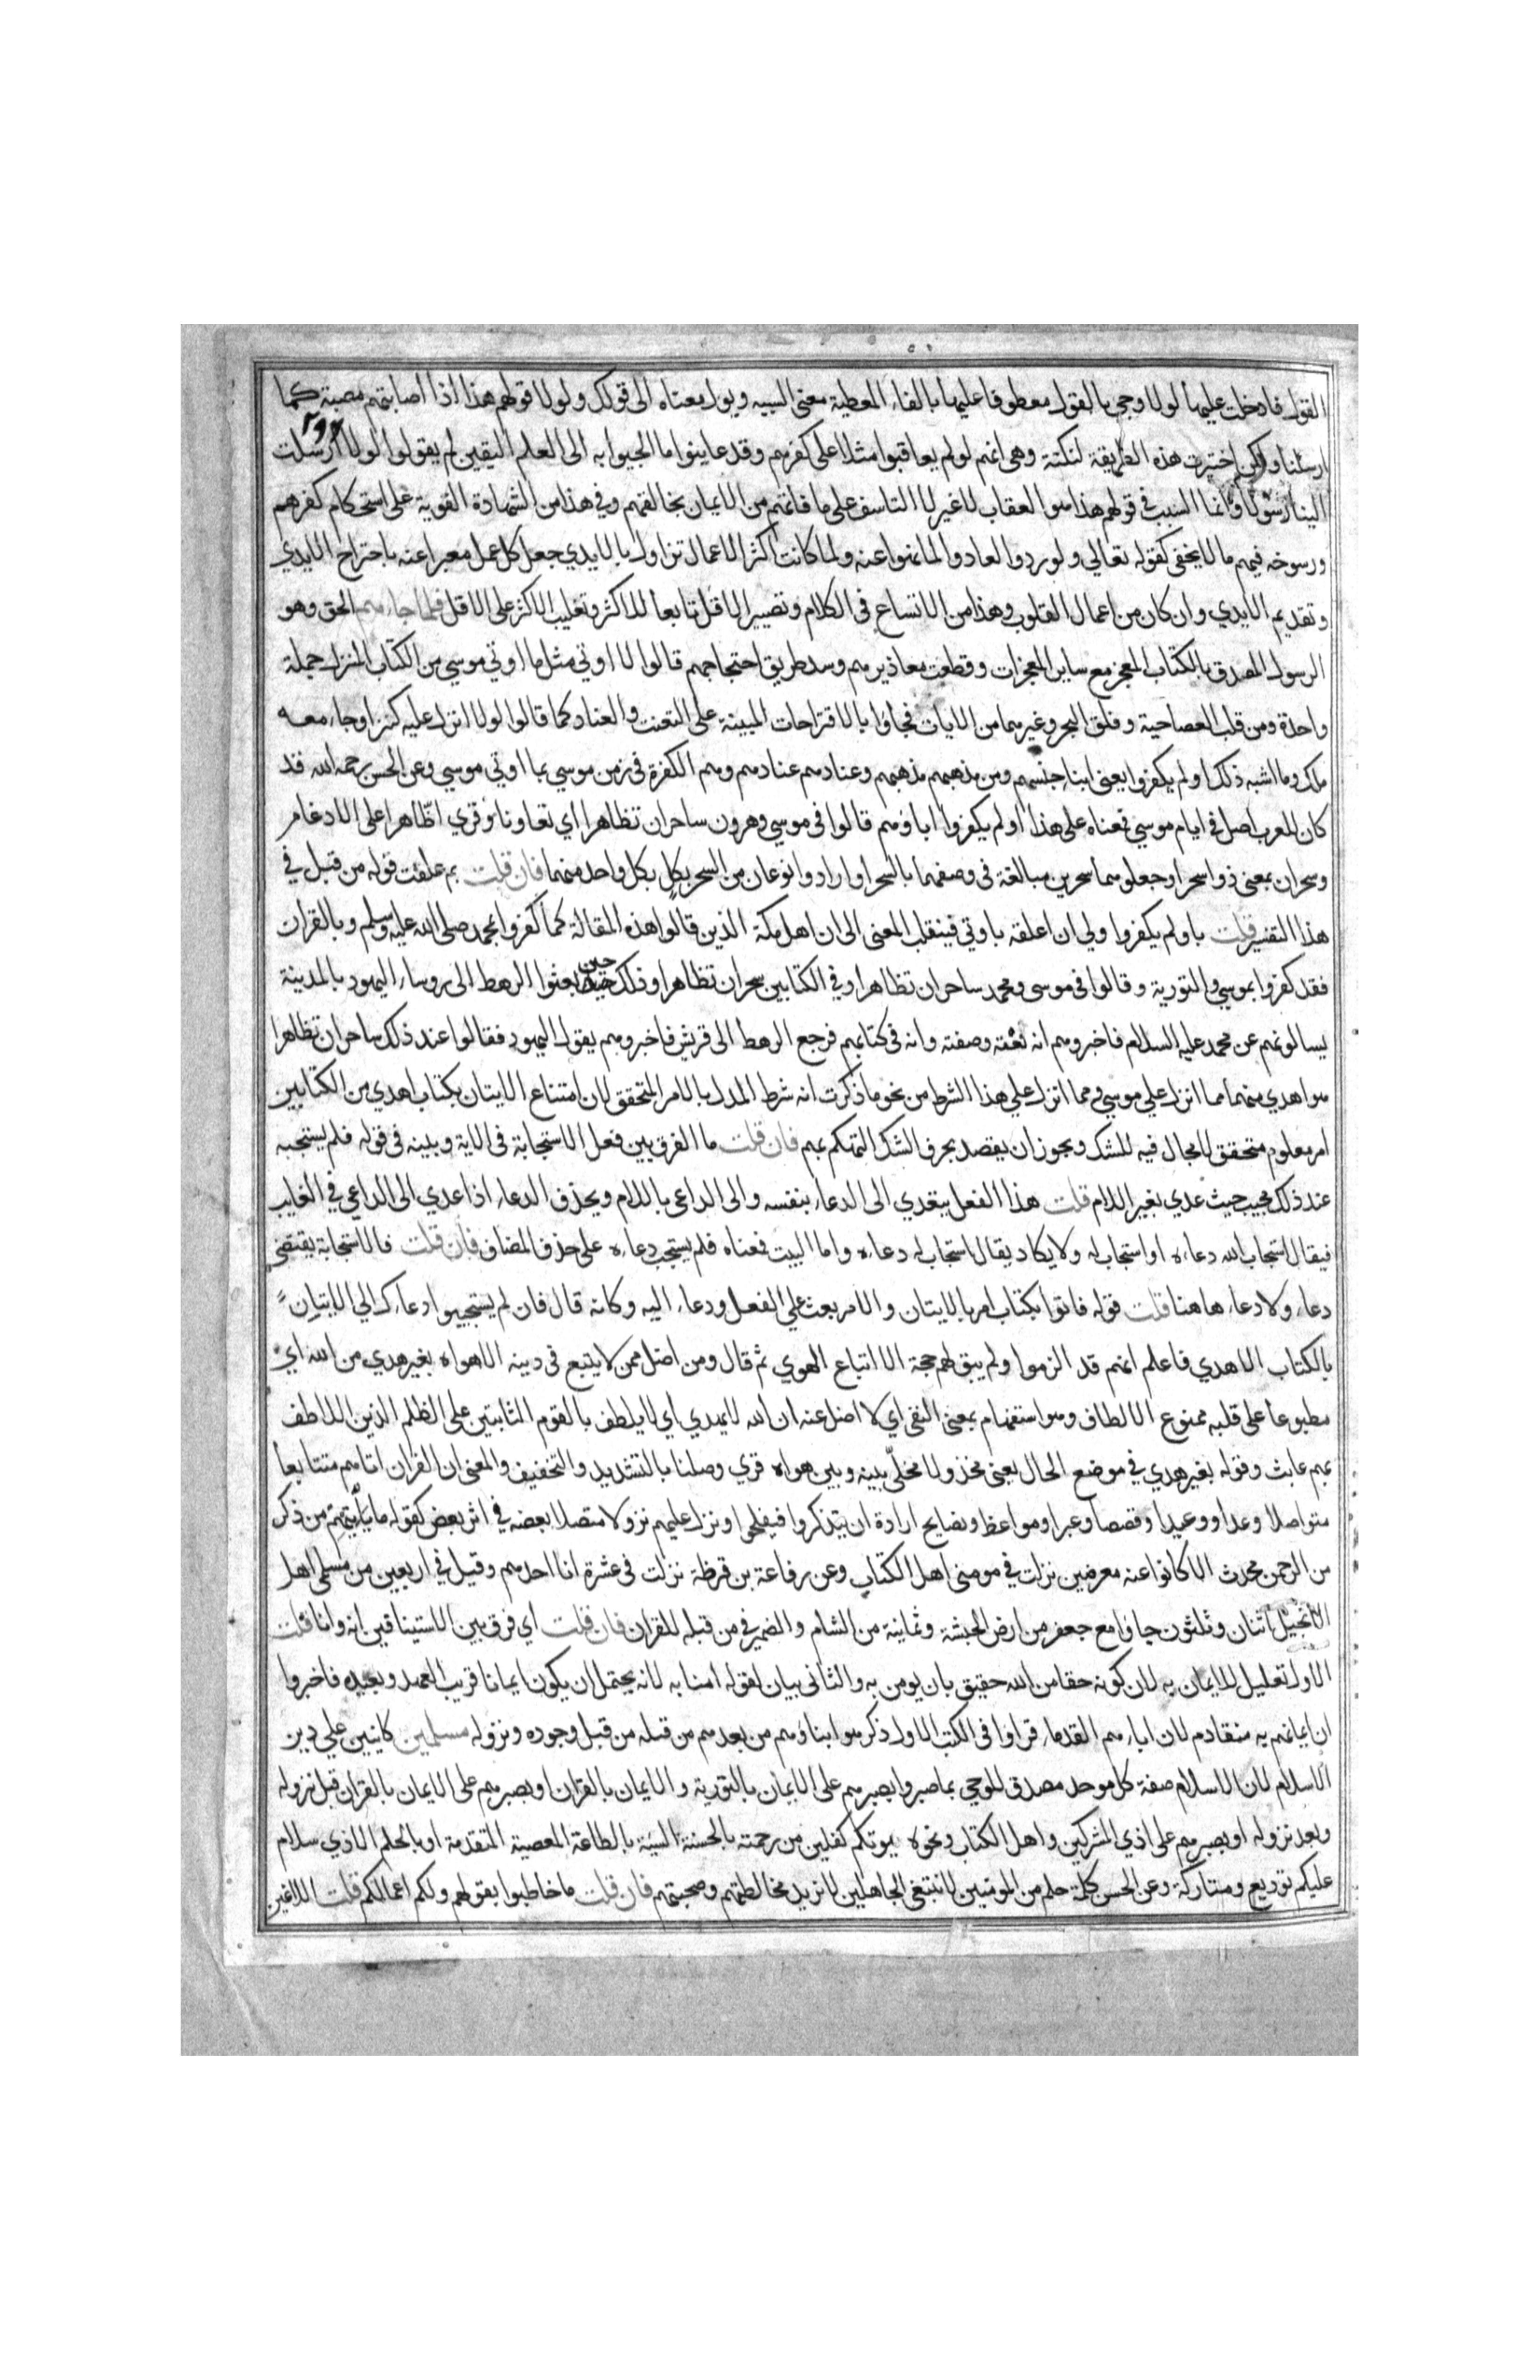 القول فادخلت عليها لولا وجي بالقول معطوفا عليها بالفاء المعطية معنى السببيه ويول معناه الى قولك ولولا قولهم هذا اذا اصابتهم مصيبة كما
ارسلنا ولكن اختيرت هذه الطريقة لنكتة وهى انهم لو لم يعاقبوا مثلا على كفرهم وقد عاينوا ما الجيوا به الى العلم اليقين لم يقولوا لولا ارسلت
الينا رسولا وانما السبب فى قولهم هذا هو العقاب لا غير لا التاسف على ما فاتهم من الايمان بخالقهم وفي هذا من الشهادة القوية على استحكام كفرهم
ورسوخه فيهم ما لا يخفى كقوله تعالي ولو ردوا لعادوا لما نهوا عنه ولما كانت اكثر الاعمال تزاول بالايدي جعل كل عمل معبرا عنه باجتراح الايدي
وتقديم الايدي وان كان من اعمال القلوب وهذا من الاتساع فى الكلام وتصيير الاقل تابعا للاكثر وتغليب الاكثر على الاقل فلما جاءهم الحق وهو
الرسول المصدق بالكتاب المعجز مع ساير المعجزات وقطعت معاذيرهم وسد طريق احتجاجهم قالوا لولا اوتي مثل ما اوتي موسي من الكتاب المنزل جملة
واحدة ومن قلب العصا حية وفلق البحر وغيرهما من الايات فجاؤا بالاقتراحات المبينة على التعنت والعناد كما قالوا لولا انزل عليه كنز اوجاء معه
ملك وما اشبه ذلك او لم يكفروا يعنى ابنا جنسهم ومن مذهبهم مذهبهم وعنادهم عنادهم وهم الكفرة فى زمن موسي بما اوتي موسي وعن الحسن رحمه الله قد
كان للعرب اصل فى ايام موسي فمعناه على هذا او لم يكفروا اباؤهم قالوا فى موسي وهرون ساحران تظاهرا اي تعاونا وقري اظّاهرا على الادغام
وسحران بمعنى ذوا سحر او جعلوهما سحرين مبالغة فى وصفهما بالسحر او ارادوا نوعان من السحر بكل بكل واحد منهما فان قلت بم علقت قوله من قبل في
هذا التفسير قلت باولم يكفروا ولي ان اعلقه باوتي فينقلب المعنى الى ان اهل مكة الذين قالوا هذه المقالة كما كفروا بمحمد صلى الله عليه وسلم وبالقران
فقد كفروا بموسي والتورية وقالوا فى موسى ومحمد ساحران تظاهرا وفي الكتابين سحران تظاهرا وذلك حين بعثوا الرهط الى روساء اليهود بالمدينة
يسالونهم عن محمد عليه السلام فاخبروهم انه نعته وصفته وانه فى كتابهم فرجع الرهط الى قريش فاخبروهم بقول اليهود فقالوا عند ذلك ساحران تظاهرا
هو اهدي منهما مما انزل علي موسي ومما انزل علي هذا الشرط من نحو ما ذكرت انه شرط المدل بالامر المتحقق لان امتناع الاتيان بكتاب اهدي من الكتابين
امر معلوم متحقق لا مجال فيه للشك ويجوز ان يقصد بحرف الشك التهكم بهم فان قلت ما الفرق بين فعل الاستجابة فى الاية وبينه فى قوله فلم يستجبه
عند ذلك مجيب حيث عدي بغير اللام قلت هذا الفعل يتعدي الى الدعاء بنفسه والى الداعى باللام ويحذف الدعاء اذا عدي الى الداعي في الغالب
فيقال استجاب الله دعاءه او استجاب له ولا يكاد يقال استجاب له دعاءه واما البيت فمعناه فلم يستجب دعاءه على حذف المضاف فان قلت فالاستجابة يقتضي
دعاء ولا دعاء هاهنا قلت قوله فاتوا بكتاب امر بالاتيان والامر بعث علي الفعل ودعاء اليه وكانه قال فان لم يستجيبوا دعاءك الي الاتيان
بالكتاب الاهدي فاعلم انهم قد الزموا ولم يبق لهم حجة الا اتباع الهوي ثم قال ومن اضل ممن لا يتبع فى دينه الا هواه بغير هدي من الله اي
مطبوعا على قلبه ممنوع الالطاف وهو استفهام بمعنى النفى اي لا اضل منه ان الله لا يهدي اي لا يلطف بالقوم الثابتين على الظلم الذين اللاطف
بهم عابث وقوله بغير هدي في موضع الحال يعنى مخذولا مخلّى بينه وبين هواه قري وصلنا بالتشديد والتخفيف والمعنى ان القران اتاهم متتابعا
متواصلا وعدا ووعيدا وقصصا وعبرا ومواعظ ونصايح ارادة ان يتذكروا فيفلحوا او نزل عليهم نزولا متصلا بعضه في اثر بعض كقوله ما ياتيهم من ذكر
من الرحمن محدث الا كانوا عنه معرضين نزلت في مومنى اهل الكتاب وعن رفاعة بن قرظة نزلت فى عشرة انا احدهم وقيل فى اربعين من مسلمى اهل
الانجيل اثنان وثلثون جاؤا مع جعفر من ارض الحبشة وثمانية من الشام والضمير في من قبله للقران فان قلت اي فرق بين الاستينافين انه وانا قلت
الاول تعليل للايمان به لان كونه حقا من الله حقيق بان يومن به والثانى بيان لقوله امنا به لانه يحتمل ان يكون ايمانا قريب العهد وبعيده فاخبروا
ان ايمانهم به متقادم لان اباءهم القدماء قراوا فى الكتب الاول ذكره وابناؤهم من بعدهم من قبله من قبل وجوده ونزوله مسلمين كاينين علي دين
الاسلام لان الاسلام صفة كل موحد مصدق للوحي بما صبروا بصبرهم على الايمان بالتورية والايمان بالقران او بصبرهم على الايمان بالقران قبل نزوله
وبعد نزوله او بصبرهم على اذي المشركين واهل الكتاب ونحوه يوتكم كفلين من رحمته بالحسنة السيئة بالطاعة المعصية المتقدمة او بالحلم الاذي سلام
عليكم توديع ومتاركة وعن الحسن كلمة حلم من المومنين لا نبتغى الجاهلين لا نريد مخالطتهم وصحبتهم فان قلت ما خاطبوا بقولهم ولكم اعمالكم قلت اللاغين